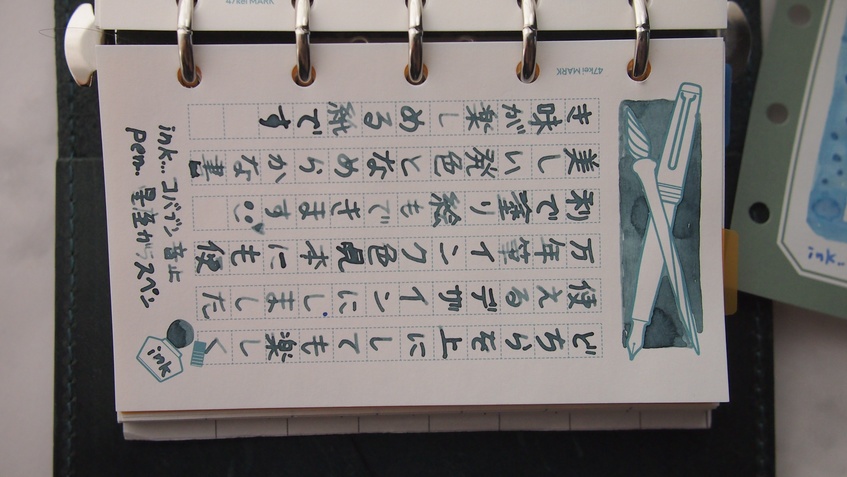 どちらを上にしても楽しく
使えるデザインにしました
万年筆インク色見本にも便
利で塗り絵もできます
美しい発色となめらかな書
き味が楽しめる紙です
ink...
pen... 星座ガラスペン
ink
MARK
MARK
ink..